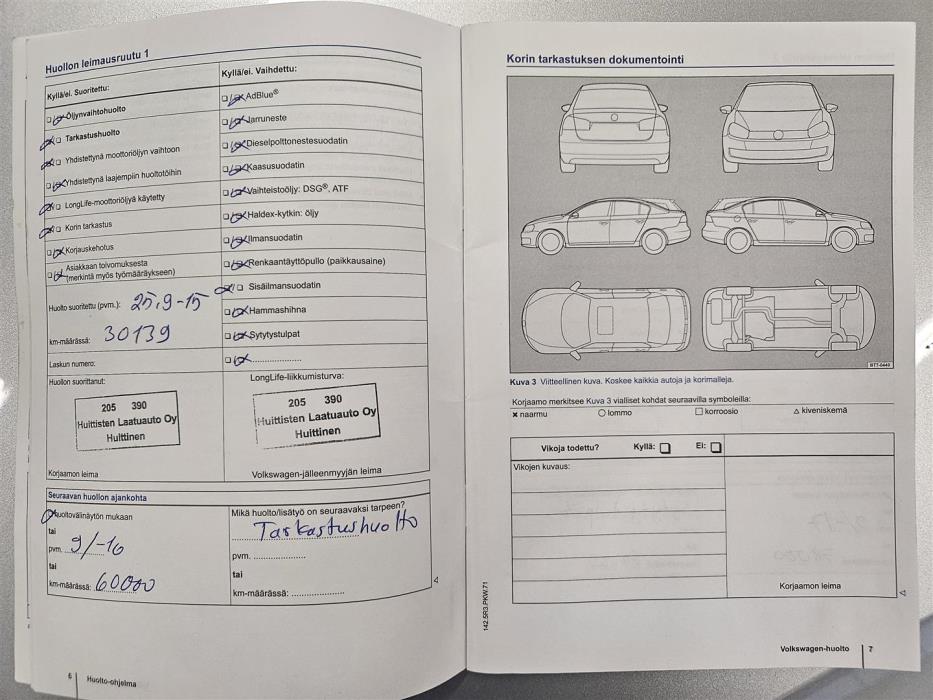 Huollon leimausruutu 1
Kyllä/ei. Suoritettu:
Öljynvaihtohuolto
Tarkastushuolto
Yhdistettynä moottoriöljyn vaihtoon
Yhdistettynä laajempiin huoltotöihin
LongLife-moottoriöljyä käytetty
Korin tarkastus
Korjauskehotus
Asiakkaan toivomuksesta
(merkintä myös työmääräykseen)
Huolto suoritettu (pvm.): 25.9-15
km-määrässä: 30139
Laskun numero:
Kyllä/ei. Vaihdettu:
AdBlue®
Jarruneste
Dieselpolttonestesuodatin
Kaasusuodatin
Vaihteistoöljy: DSG®, ATF
Haldex-kytkin: öljy
Ilmansuodatin
Renkaantäyttöpullo (paikkausaine)
Sisäilmansuodatin
Hammashihna
Sytytystulpat
Huollon suorittanut:
205 390
Huittisten Laatuauto Oy
Huittinen
Korjaamon leima
LongLife-liikkumisturva:
205 390
Huittisten Laatuauto Oy
Huittinen
Volkswagen-jälleenmyyjän leima
Seuraavan huollon ajankohta
Huoltovälinäytön mukaan
tai
pvm. 9/-16
tai
km-määrässä: 60000
Mikä huolto/lisätyö on seuraavaksi tarpeen?
Tarkastushuolto
pvm. ....................
tai
km-määrässä: ....................
6 Huolto-ohjelma
Korin tarkastuksen dokumentointi
BTT-0449
Kuva 3 Viitteellinen kuva. Koskee kaikkia autoja ja korimalleja.
Korjaamo merkitsee Kuva 3 vialliset kohdat seuraavilla symboleilla:
× naarmu ○ lommo □ korroosio △ kiveniskemä
Vikoja todettu? Kyllä: □ Ei: □
Vikojen kuvaus:
Korjaamon leima
142.5R3.PKW.71
Volkswagen-huolto 7